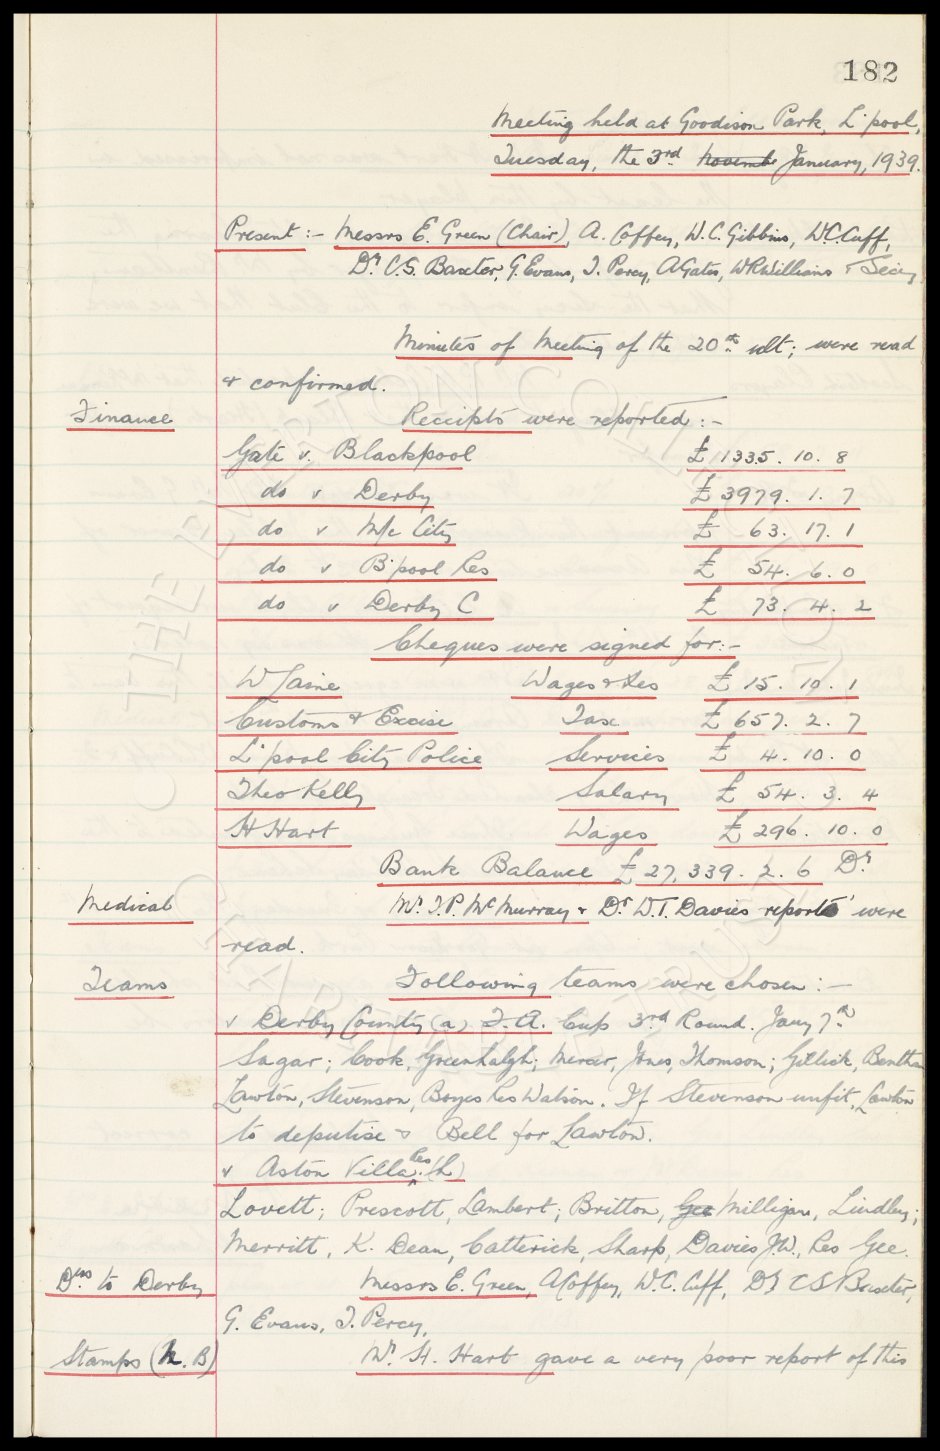 182
Meeting held at Goodison Park, L'pool,
Tuesday, the 3rd Novembe January, 1939.
Present :- Messrs E. Green (Chair), A. Coffey, W.C. Gibbins, W.C. Cuff,
Dr. C.S. Baxter, G. Evans, T. Percy, A Gates, W R Williams & Secy.
Minutes of Meeting of the 20th ult; were read
& confirmed.
Finance Receipts were reported :-
Gate v. Blackpool £ 1335. 10. 8
do v Derby £ 3979. 1. 7
do v M/c City £ 63. 17. 1
do v B'pool Res £ 54. 6. 0
do v Derby C £ 73. 4. 2
Cheques were signed for:-
W Jaine Wages & Res £ 15. 10. 1
Customs & Excise Tax £ 657. 2. 7
L'pool City Police Services £ 4. 10. 0
Theo Kelly Salary £ 54. 3. 4
H Hart Wages £ 296. 10. 0
Bank Balance £ 27,339. 2. 6 Dr
Medical Mr. T.P. McMurray & Dr W.T. Davies reports were
read.
Teams Following teams were chosen :-
v Derby County (a) F.A. Cup 3rd Round. Jany 7th
Sagar; Cook, Greenhalgh; Mercer, Jones, Thomson; Gillick, Bentham
Lawton, Stevenson, Boyes Res Watson. If Stevenson unfit, Lawton
to deputise & Bell for Lawton.
v Aston Villa Res. (h)
Lovett; Prescott, Lambert; Britton, Gee Milligan, Lindley;
Merritt, K. Dean, Catterick, Sharp, Davies J.W., Res Gee.
Drs to Derby Messrs E. Green, A Coffey, W.C. Cuff, Dr C S Baxter,
G. Evans, T. Percy,
Stamps (N.B) Mr. H. Hart gave a very poor report of this